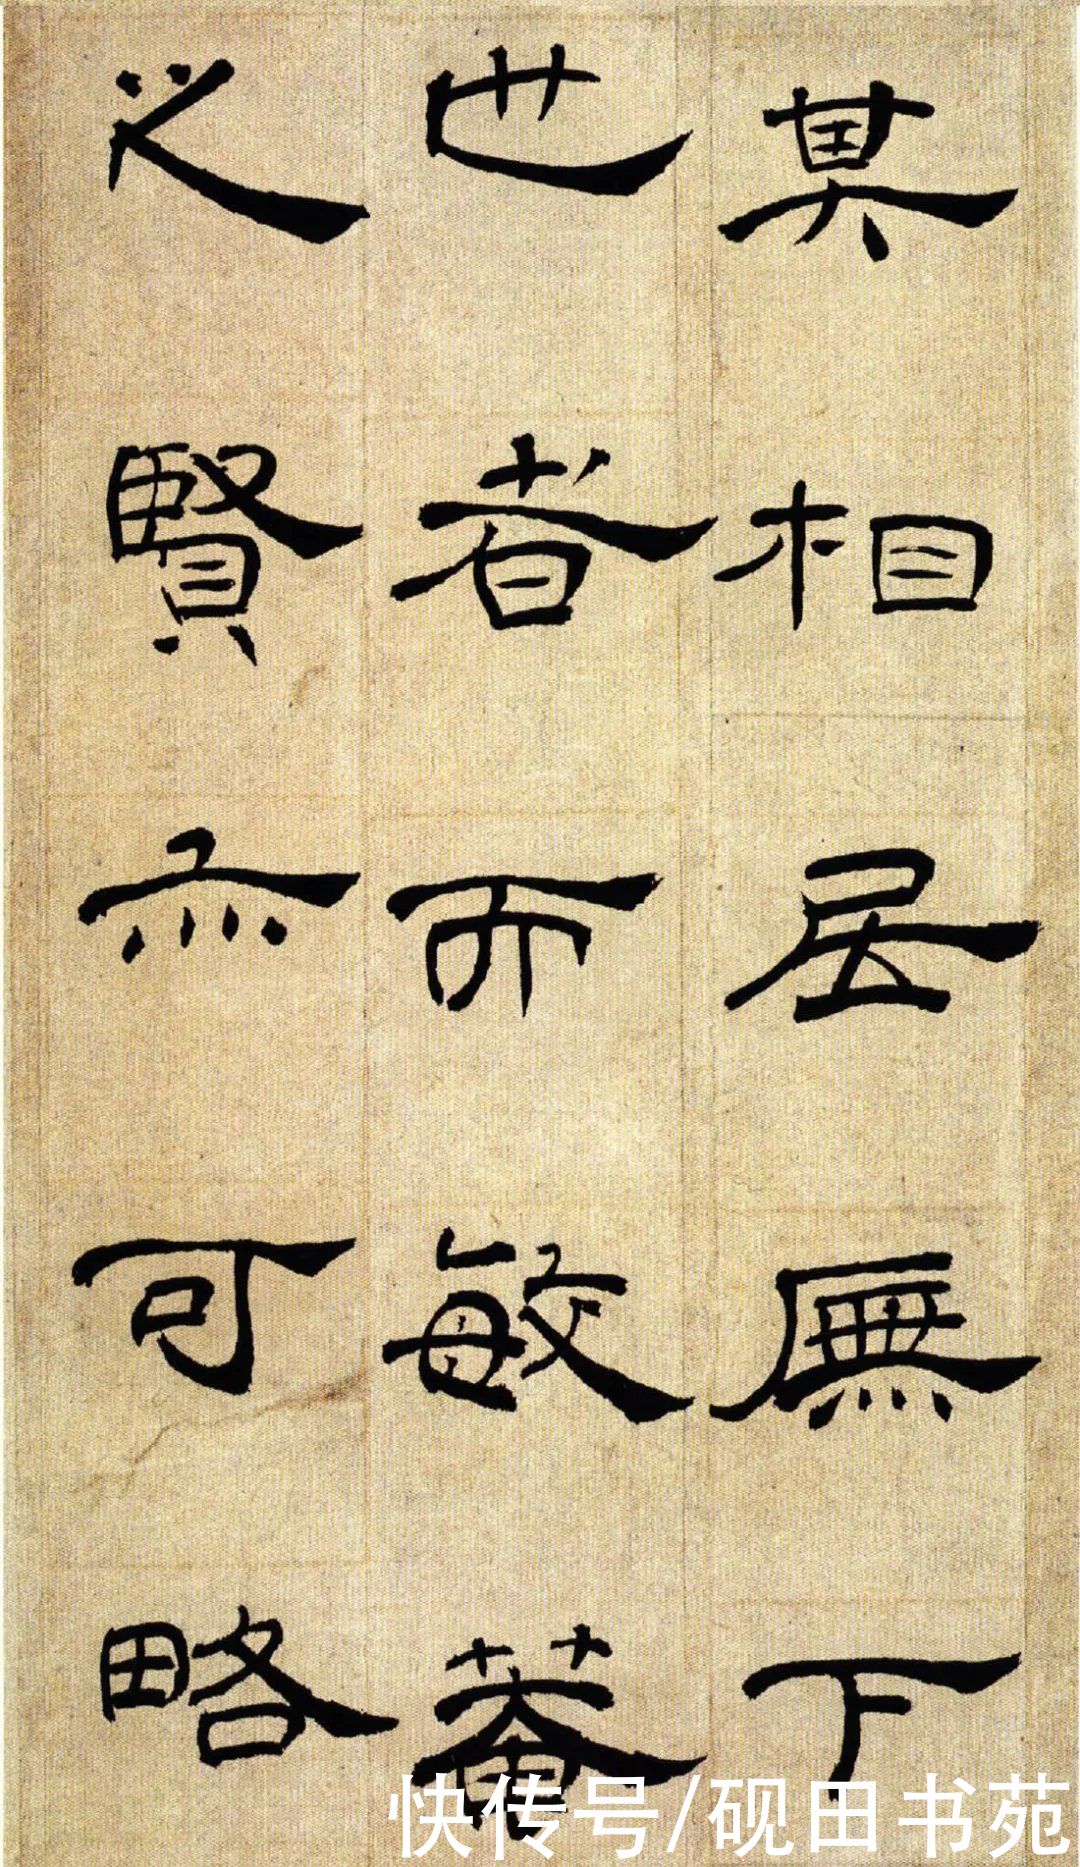 其相居廡下
也者而敏菴
之賢亦可略
快传号/砚田书苑